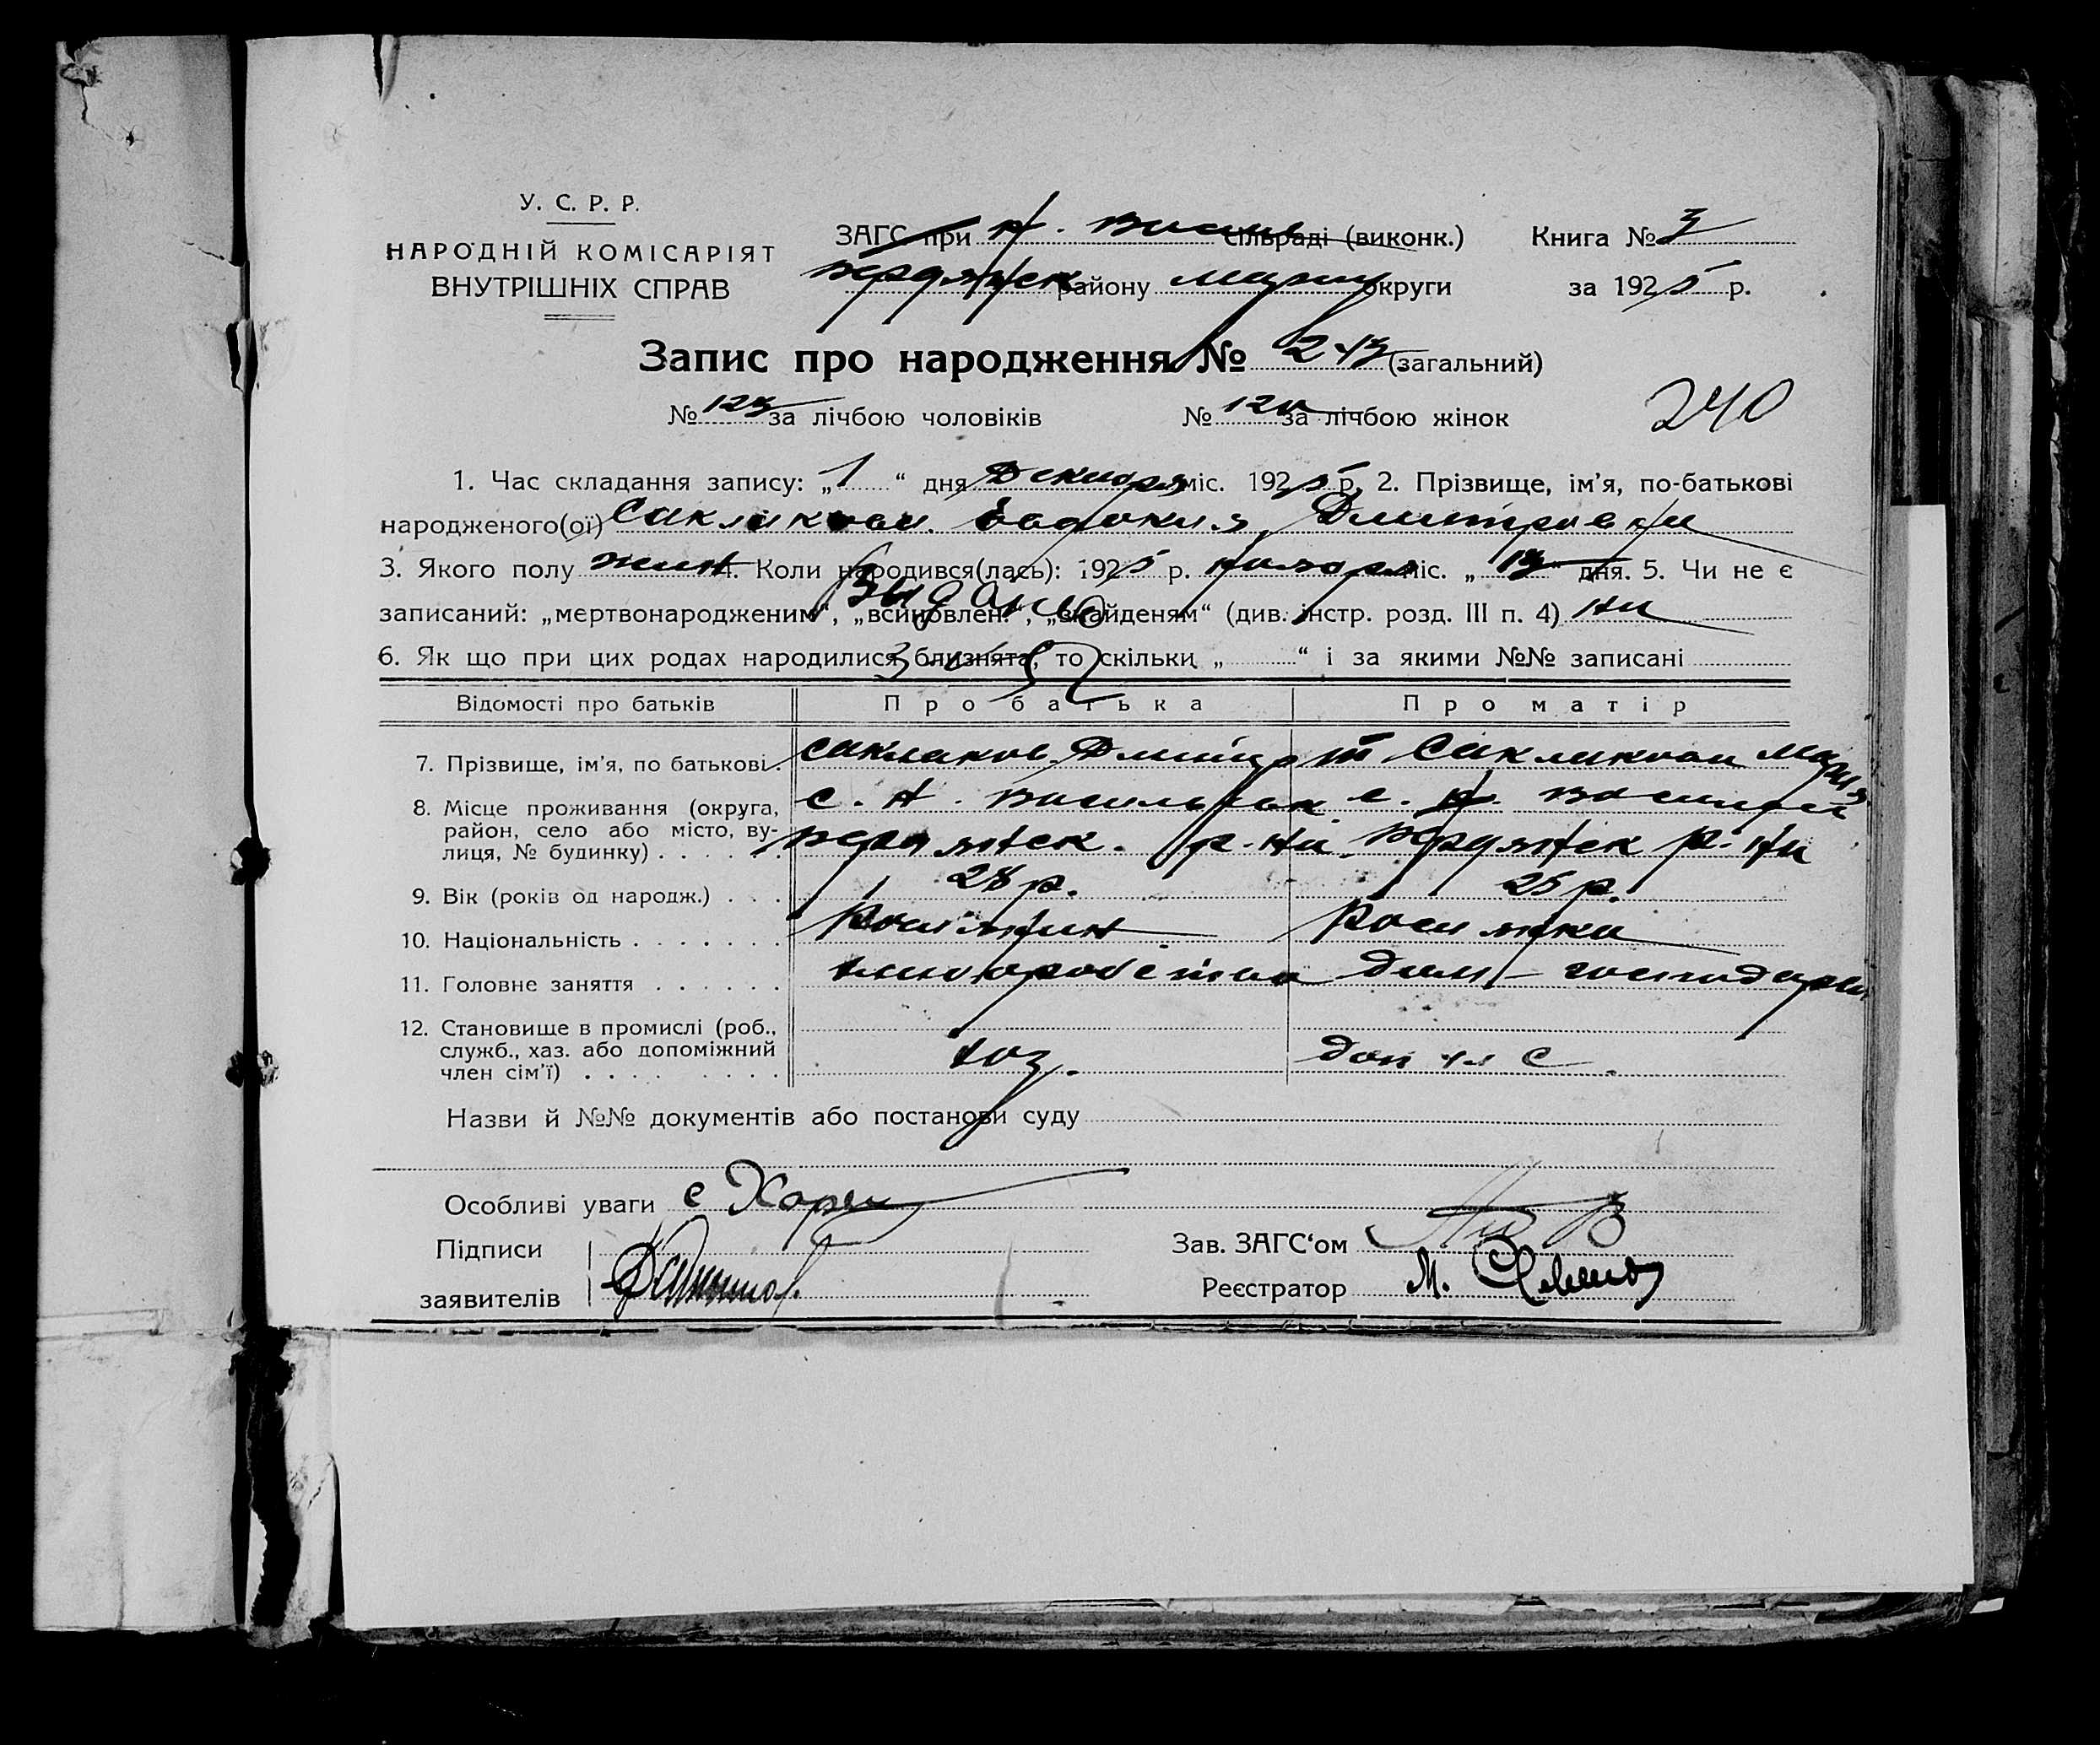 У. С. Р. Р.
НАРОДНІЙ КОМІСАРІЯТ
ВНУТРІШНІХ СПРАВ
ЗАГС при Н. Васил сільраді (виконк.) Книга № 3
Бердянск району Мариу округи за 1925 р.
Запис про народження № 243 (загальний)
№ 123 за лічбою чоловіків № 120 за лічбою жінок
240
1. Час складання запису: „1“ дня Декабря міс. 1925 р. 2. Прізвище, ім'я, по-батькові
народженого(ої) Саклакова Евдокия Дмитровна
3. Якого полу жин 4. Коли народився(лась): 1925 р. ноября міс. „13“ дня. 5. Чи не є
записаний: „мертвонародженим“, „всиновлен.“, „знайденям“ (див. інстр. розд. III п. 4) ни
6. Як що при цих родах народилися близнята, то скільки „ “ і за якими №№ записані
Відомості про батьків Про батька Про матір
7. Прізвище, ім'я, по батькові. Саклаков Дмитр Саклакова Мария
8. Місце проживання (округа, район, село або місто, вулиця, № будинку) с. Н. Васильевк с. Н. Василев
Бердянск. р-на Бердянск р-на
9. Вік (років од народж.) 28 р. 25 р.
10. Національність росиянин росиянка
11. Головне заняття хлиборобство дом-господарка
12. Становище в промислі (роб., служб., хаз. або допоміжний член сім'ї) хоз. доп чл С.
Назви й №№ документів або постанови суду
Особливі уваги
Підписи
заявителів
Зав. ЗАГС‘ом
Реєстратор М.